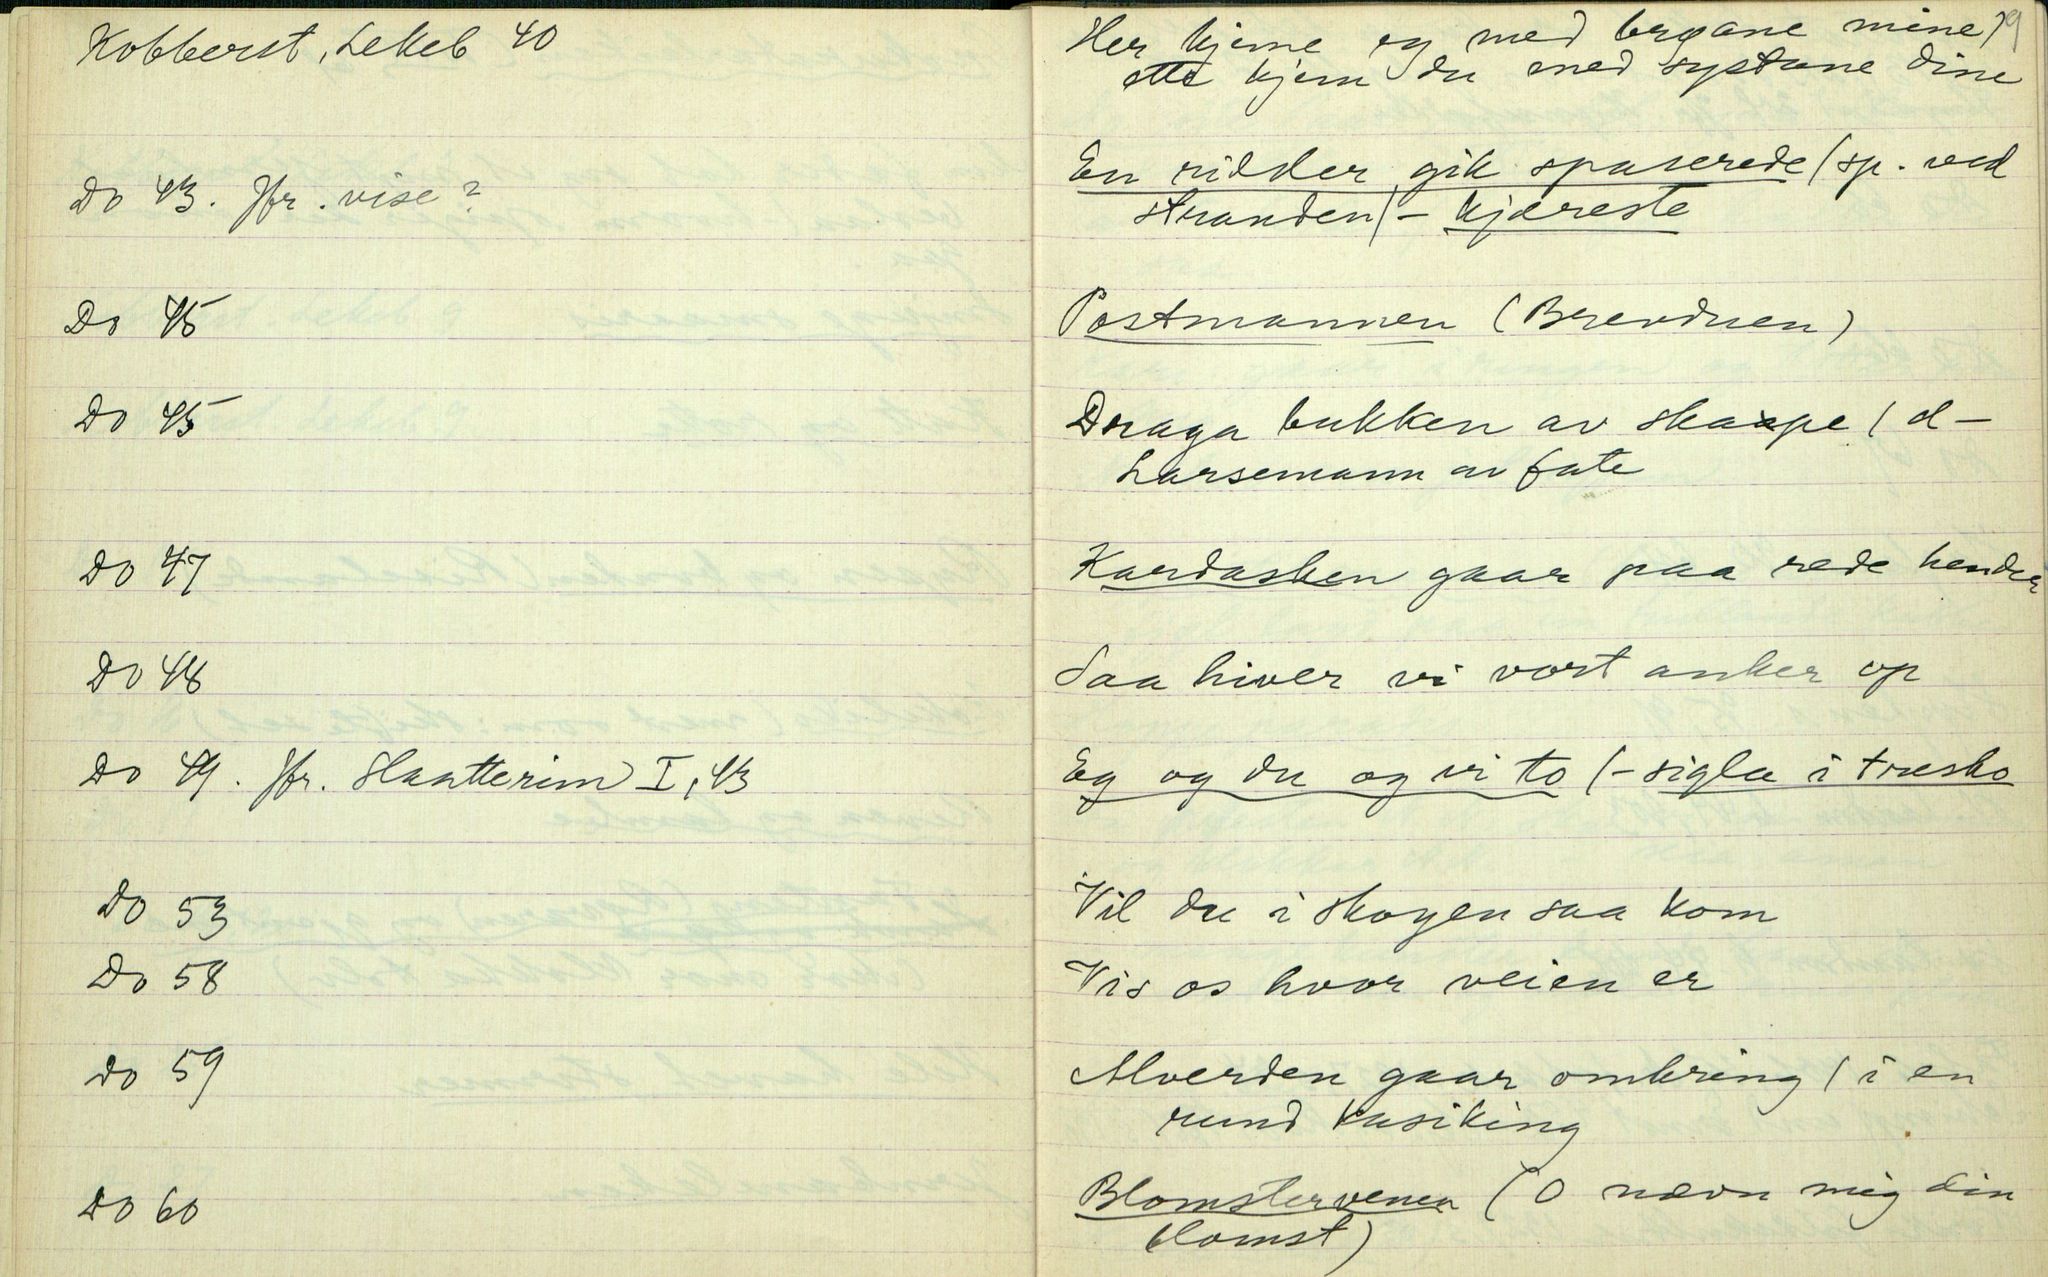 Kobberst, Lekeb 40
Do 43. Jfr. vise?
Do 45
Do 45
Do 47
Do 48
Do 49. Jfr. Slaatterim I, 43
Do 53
Do 58
Do 59
Do 60
9
Her kjeme eg med brøane mine /
atte kjem du med systane dine
En ridder gik spaserede / sp. ved
stranden / - kjæreste
Postmannen (Brevduen)
Draga bukken av skaape / d -
Larsemann av fate
Kardasken gaar paa rede hender
Saa hiver vi vort anker op
Eg og du og vi to / - sigla i tresko
Vil du i skogen saa kom
Vis os hvor veien er
Alverden gaar omkring / i en
rund kusiking
Blomstervenen (O nævn mig din
blomst)